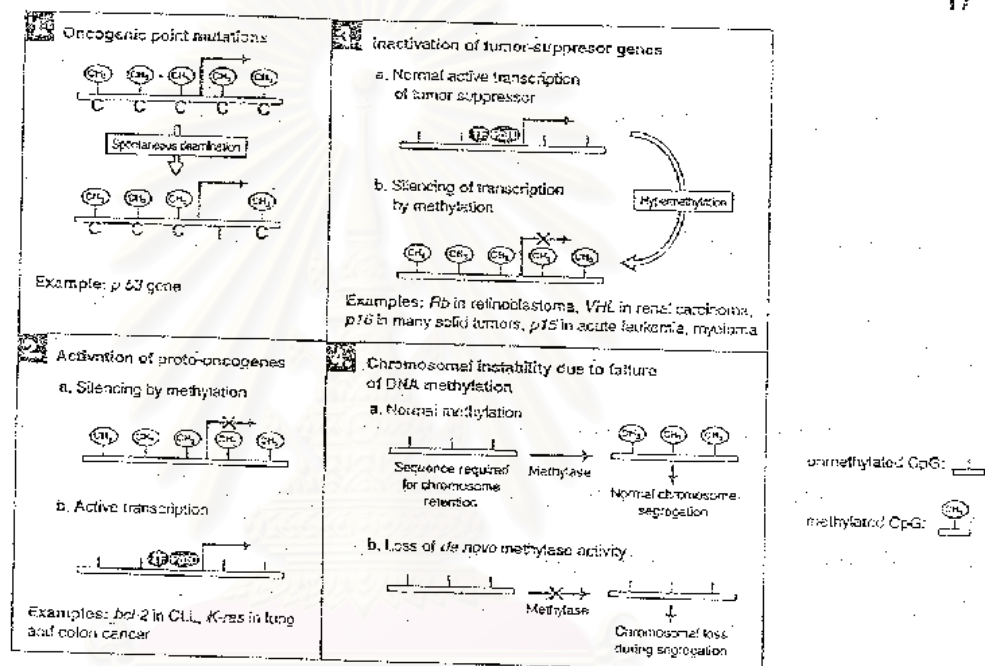 17
1 Oncogenic point mutations
CH₃ CH₃ CH₃ CH₃ CH₃
C C C C C
Spontaneous deamination
CH₃ CH₃ CH₃ CH₃
C C C T C
Example: p 53 gene
2 Activation of proto-oncogenes
a. Silencing by methylation
CH₃ CH₃ CH₃ CH₃ CH₃
b. Active transcription
Examples: bcl-2 in CLL, K-ras in lung
and colon cancer
3 Inactivation of tumor-suppresor genes
a. Normal active transcription
of tumor suppressor
b. Silencing of transcription
by methylation
Hypermethylation
CH₃ CH₃ CH₃ CH₃ CH₃
Examples: Rb in retinoblastoma, VHL in renal carcinoma,
p16 in many solid tumors, p15 in acute leukemia, myeloma
Chromosomal instability due to failure
of DNA methylation
a. Normal methylation
CH₃ CH₃ CH₃
Sequence required
for chromosome
retention
Methylase
Normal chromosome
segregation
b. Loss of de novo methylase activity
Methylase
Chromosomal loss
during segregation
unmethylated CpG:
methylated CpG:
CH₃